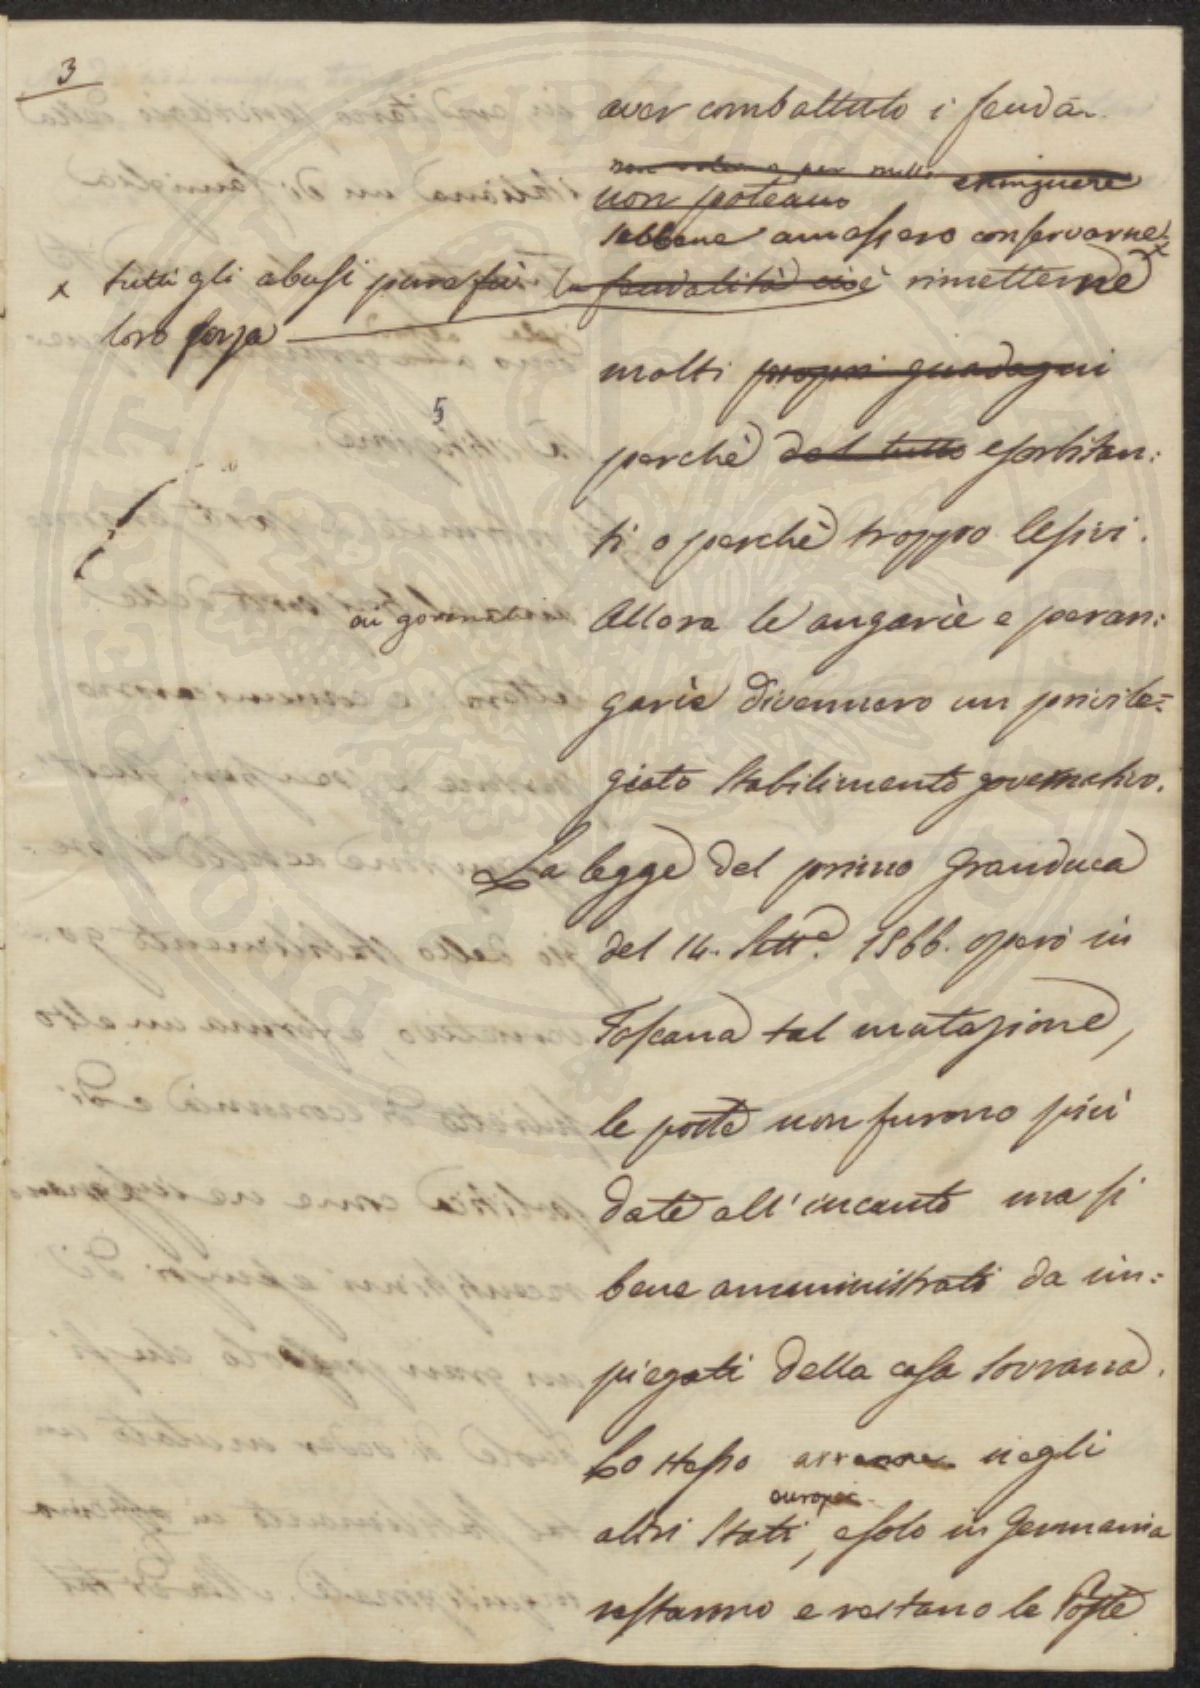 3
aver combattuto i feuda-
non poteano estinguere
sebbene amassero conservarne
x tutti gli abusi pure la feudalità cioè rimetterne
loro forza
molti propri guadagni
5
perchè del tutto esorbitan:
ti o perchè troppo lesivi.
ai governativi
Allora le angarie e peran:
garie divennero un privile=
giato stabilimento governativo.
La legge del primo Granduca
del 14. Sett.e 1566. operò in
Toscana tal mutazione,
le poste non furono più
date all'incanto ma si
bene amministrati da im:
piegati della casa sovrana.
Lo stesso avvenne negli
europei
altri Stati, e solo in Germania
restarono e restano le Poste